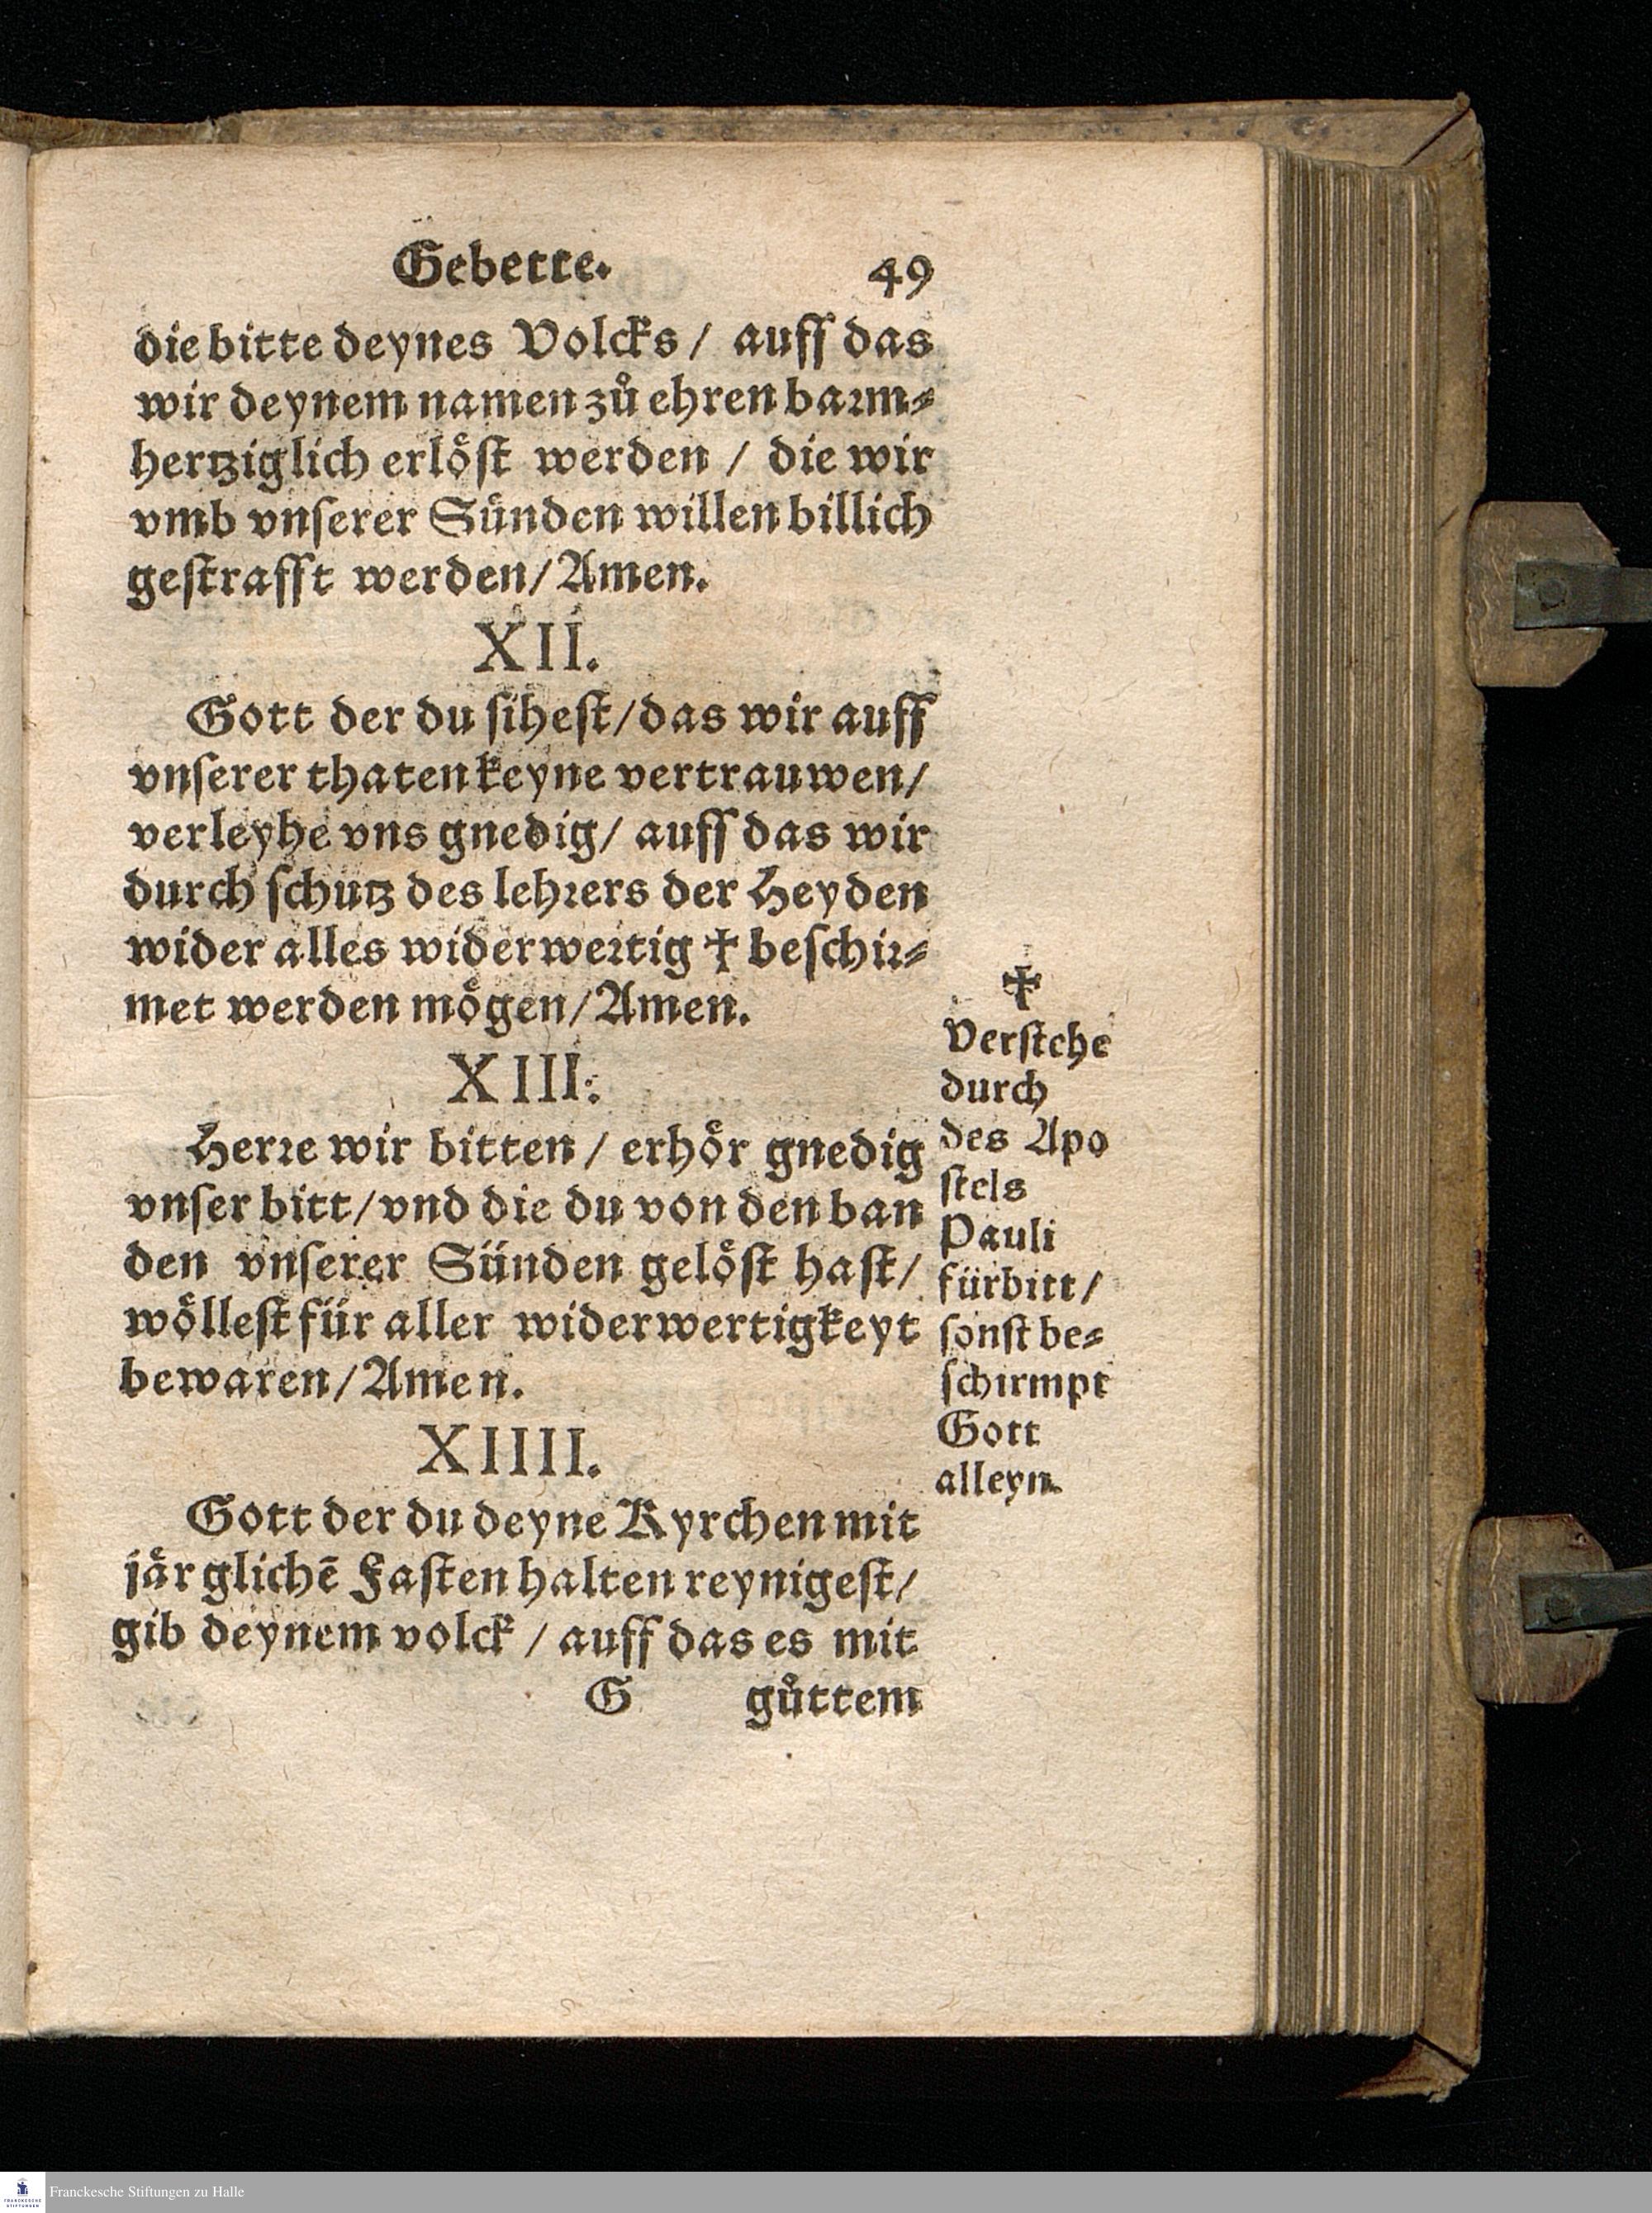 Gebette. 49
die bitte deynes Volcks / auff das
wir deynem namen zů ehren barm⸗
hertziglich erlöſt werden / die wir
vmb vnſerer Sünden willen billich
geſtrafft werden/ Amen.
XII.
Gott der du ſiheſt/das wir auff
vnſerer thaten keyne vertrauwen/
verleyhe vns gnedig/ auff das wir
durch ſchutz des lehrers der Heyden
wider alles widerwertig ✝ beſchir⸗
met werden mögen/Amen.
XIII.
Herre wir bitten / erhör gnedig
vnſer bitt/vnd die du von den ban
den vnſerer Sünden gelöſt haſt/
wölleſt für aller widerwertigkeyt
bewaren/Amen.
XIIII.
Gott der du deyne Kyrchen mit
järglichē Faſten halten reynigeſt/
gib deynem volck / auff das es mit
G gůttem
✝
Verſtehe
durch
des Apo
ſtels
Pauli
fürbitt/
ſonſt be⸗
ſchirmpt
Gott
alleyn.
FRANCKESCHE
STIFTUNGEN
Franckesche Stiftungen zu Halle